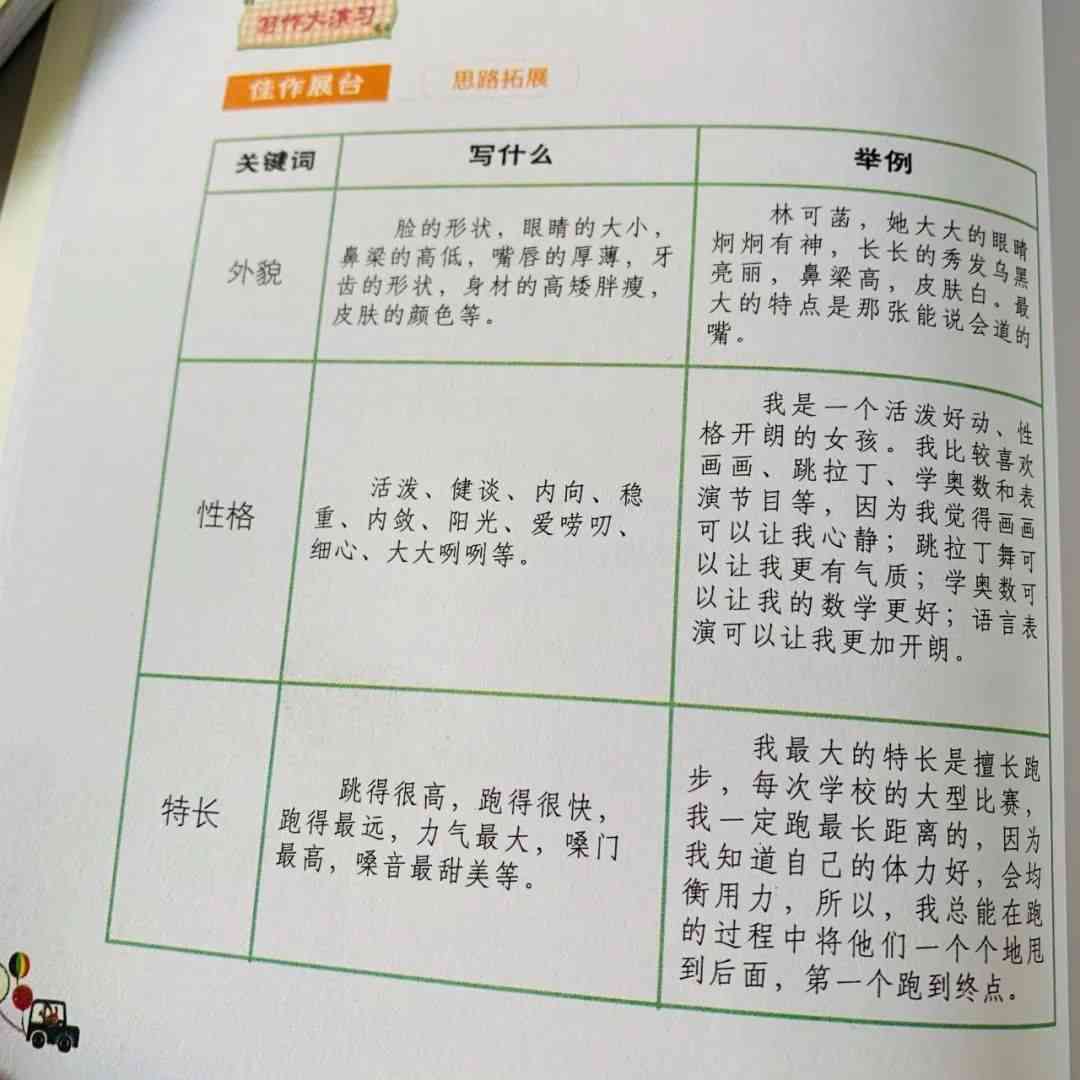 写作大演习
佳作展台
思路拓展
关键词
写什么
举例
外貌
脸的形状，眼睛的大小，
鼻梁的高低，嘴唇的厚薄，牙
齿的形状，身材的高矮胖瘦，
皮肤的颜色等。
林可菡，她大大的眼睛
炯炯有神，长长的秀发乌黑
亮丽，鼻梁高，皮肤白。最
大的特点是那张能说会道的
嘴。
性格
活泼、健谈、内向、稳
重、内敛、阳光、爱唠叨、
细心、大大咧咧等。
我是一个活泼好动、性
格开朗的女孩。我比较喜欢
画画、跳拉丁、学奥数和表
演节目等，因为我觉得画画
可以让我心静；跳拉丁舞可
以让我更有气质；学奥数可
以让我的数学更好；语言表
演可以让我更加开朗。
特长
跳得很高，跑得很快，
跑得最远，力气最大，嗓门
最高，嗓音最甜美等。
我最大的特长是擅长跑
步，每次学校的大型比赛，
我一定跑最长距离的，因为
我知道自己的体力好，会均
衡用力，所以，我总能在跑
的过程中将他们一个个地甩
到后面，第一个跑到终点。